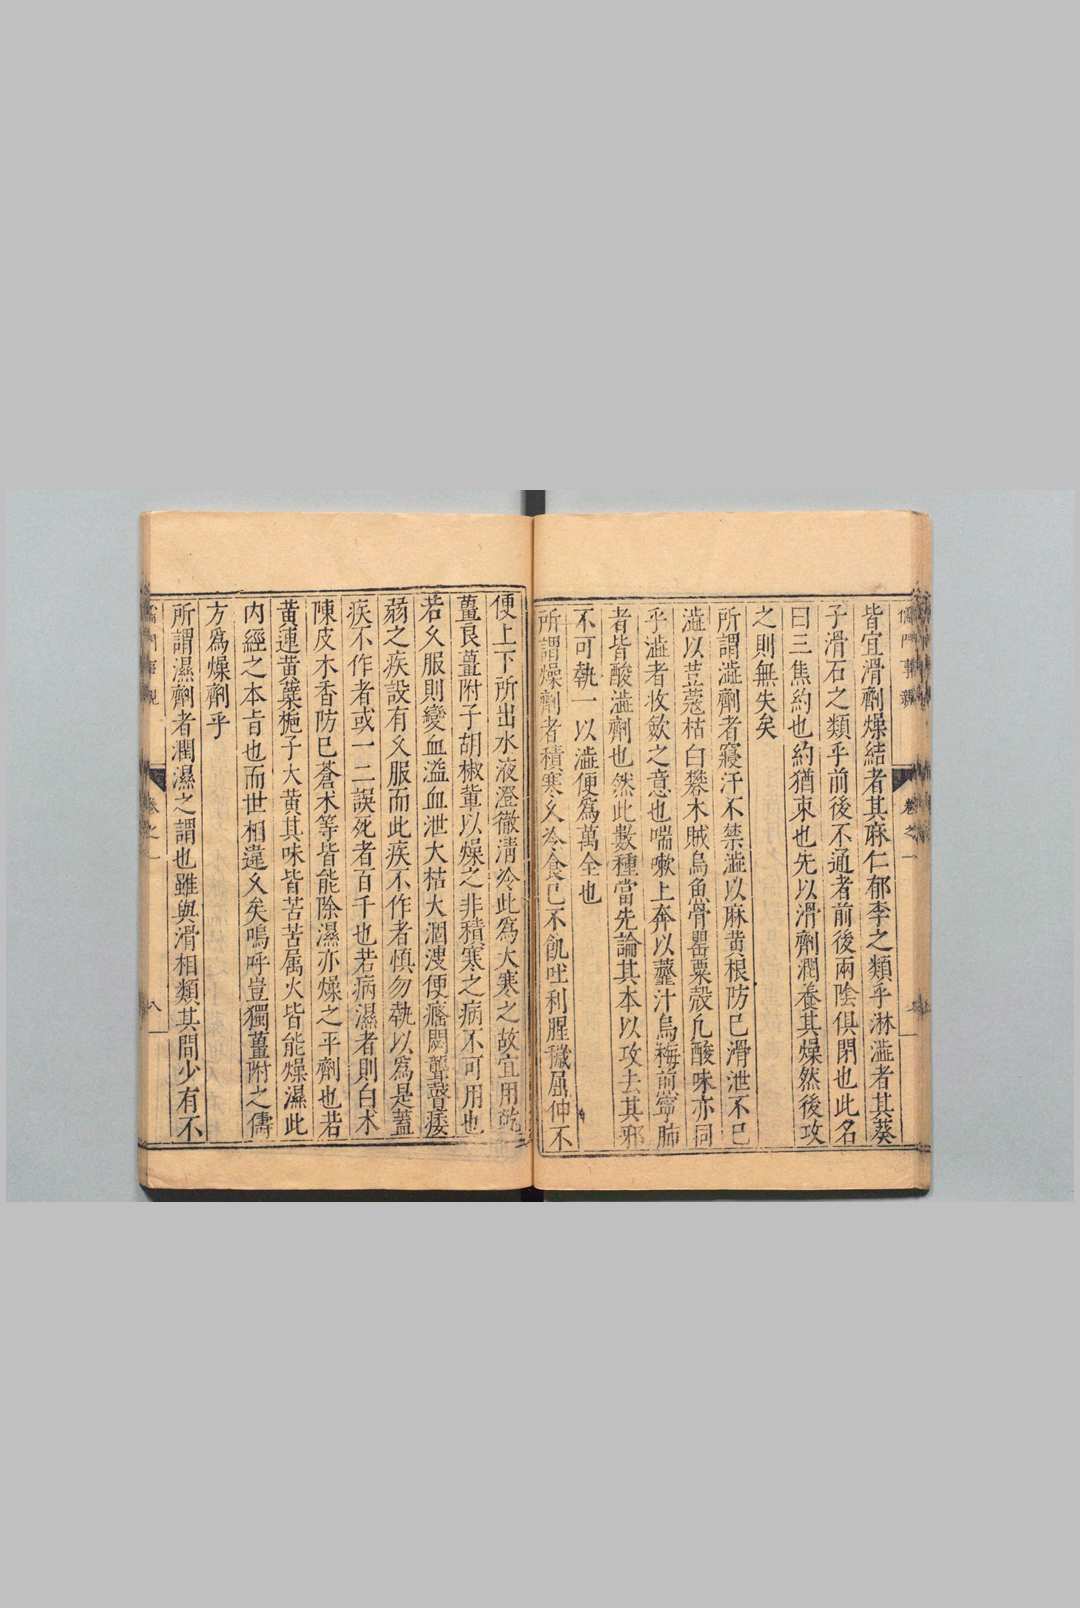 儒門事親
卷之一
皆宜滑劑燥結者其麻仁郁李之類乎淋澁者其葵
子滑石之類乎前後不通者前後兩陰俱閉也此名
曰三焦約也約猶束也先以滑劑潤養其燥然後攻
之則無失矣
所謂澁劑者寢汗不禁澁以麻黄根防巳滑泄不巳
澁以荳蔻枯白礬木賊烏魚骨罌粟殼凢酸味亦同
乎澁者收歛之意也喘嗽上奔以虀汁烏梅煎寧肺
者皆酸澁劑也然此數種當先論其本以攻去其邪
不可執一以澁便爲萬全也
所謂燥劑者積寒乆冷食巳不飢吐利腥穢屈伸不
便上下所出水液澄徹清冷此爲大寒之故宜用乾
薑良薑附子胡椒軰以燥之非積寒之病不可用也
若乆服則變血溢血泄大枯大涸溲便癃閉聾瞽痿
弱之疾設有乆服而此疾不作者愼勿執以爲是蓋
疾不作者或一二誤死者百千也若病濕者則白术
陳皮木香防巳蒼术等皆能除濕亦燥之平劑也若
黄連黄蘖梔子大黄其味皆苦苦属火皆能燥濕此
内經之本㫖也而世相違乆矣嗚呼豈獨薑附之儔
方爲燥劑乎
所謂濕劑者潤濕之謂也雖與滑相類其間少有不
儒門事親
卷之一
八